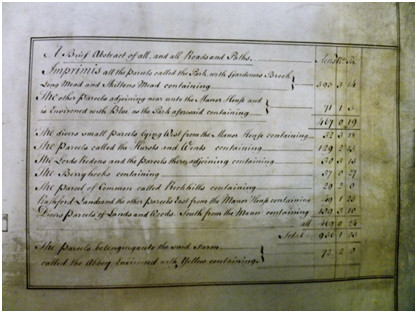 A Brief Abstract of all, and all Roads and Paths.
Imprimis all the parcels called the Park, with Gardeners Brook
Long Mead and Shiltons Mead containing
The other Parcels adjoining near unto the Manor House and
is Environed with Blue as the Park aforesaid containing 71 1 5
467 0 19
The divers small parcels lying West from the Manor House containing 52 3 18
The Parcels called the Hursts and Wents containing 129 2 23
The Lords Ridens and the Parcels there adjoining containing 30 3 13
The Berryhooks containing 37 0 27
The parcel of Common called Rockhills containing 29 2 0
Rushford Lands and the other Parcels East from the Manor House containing 49 1 23
Divers Parcels of Lands and Woods South from the containing 139 3 10
all 469 0 24
936 1 33
The Parcels belonging unto the said Farm
called the Abbey Environed with Yellow containing 72 2 0